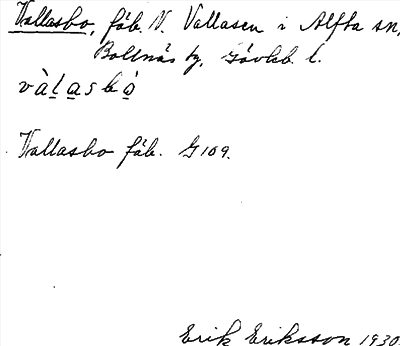 Vallasbo, fäb. N. Vallasen i Alfta sn,
Bollnäs tg, Gävleb. l.
và l a s b ó
Vallasbo fäb. G 109.
Erik Eriksson 1930.